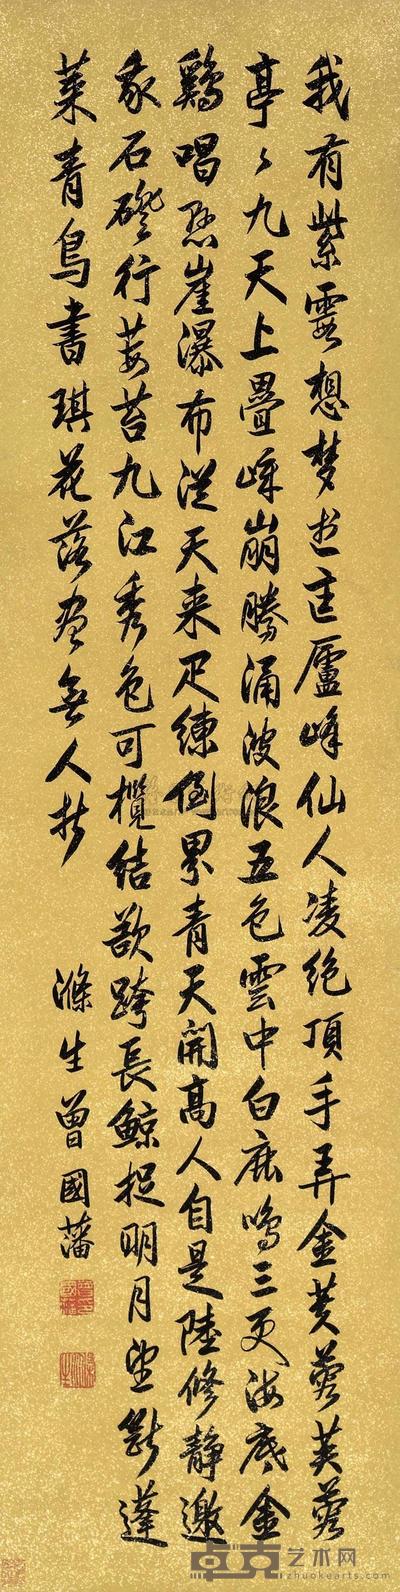 我有紫霞想梦在匡廬峰仙人凌绝頂手弄金芙蓉芙蓉
亭々九天上疊嶂崩騰涌波浪五色雲中白鹿鳴三更海底金
鷄唱懸崖瀑布從天来疋練倒界青天開高人自是陸修静邀
我石磴行莓苔九江秀色可攬結欲跨長鲸捉明月望斷蓬
莱青鳥書琪花落盡無人折
滌生曾國藩
卓克艺术网
www.zhuokearts.com